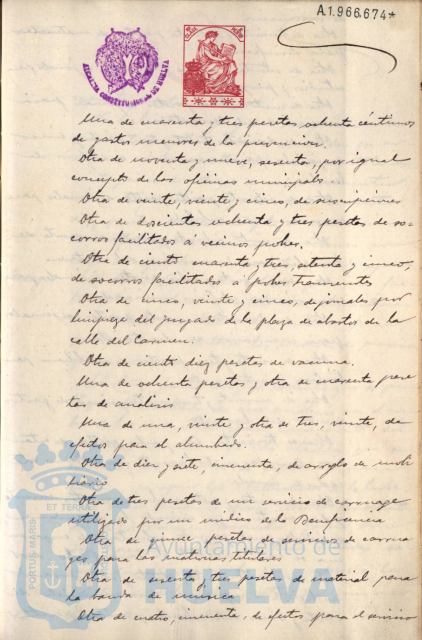 A1.966.674*
ALCALDIA CONSTITUCIONAL DE HUELVA
Una de cuarenta y tres pesetas, ochenta céntimos
de gastos menores de la prevención.
Otra de noventa y nueve, sesenta, por igual
concepto de las oficinas municipales
Otra de veinte, veinte y cinco, de suscripciones
Otra de doscientas ochenta y tres pesetas de so-
corros facilitados a vecinos pobres.
Otra de ciento cuarenta y tres, setenta y cinco,
de socorros facilitados a pobres transeuntes
Otra de cinco, veinte y cinco, de jornales por
limpieza del juzgado de la plaza de abastos de la
calle del Carmen.
Otra de ciento diez pesetas de vacuna.
Una de ochenta pesetas y otra de cuarenta pese
tas de analisis
Una de una, veinte y otra de tres, veinte, de
efectos para el alumbrado.
Otra de diez y siete, cincuenta, de arreglo de mobi
liario
Otra de tres pesetas de un servicio de carruage
utilizado por un médico de la Beneficencia
Otra de quince pesetas de servicios de carrua
ges para las matronas titulares
Otra de sesenta y tres pesetas de material para
la banda de musica
Otra de cuatro, cincuenta, de efectos para el servicio
Ayuntamiento de
HUELVA
PORTUS MARIS
ET TERRAE